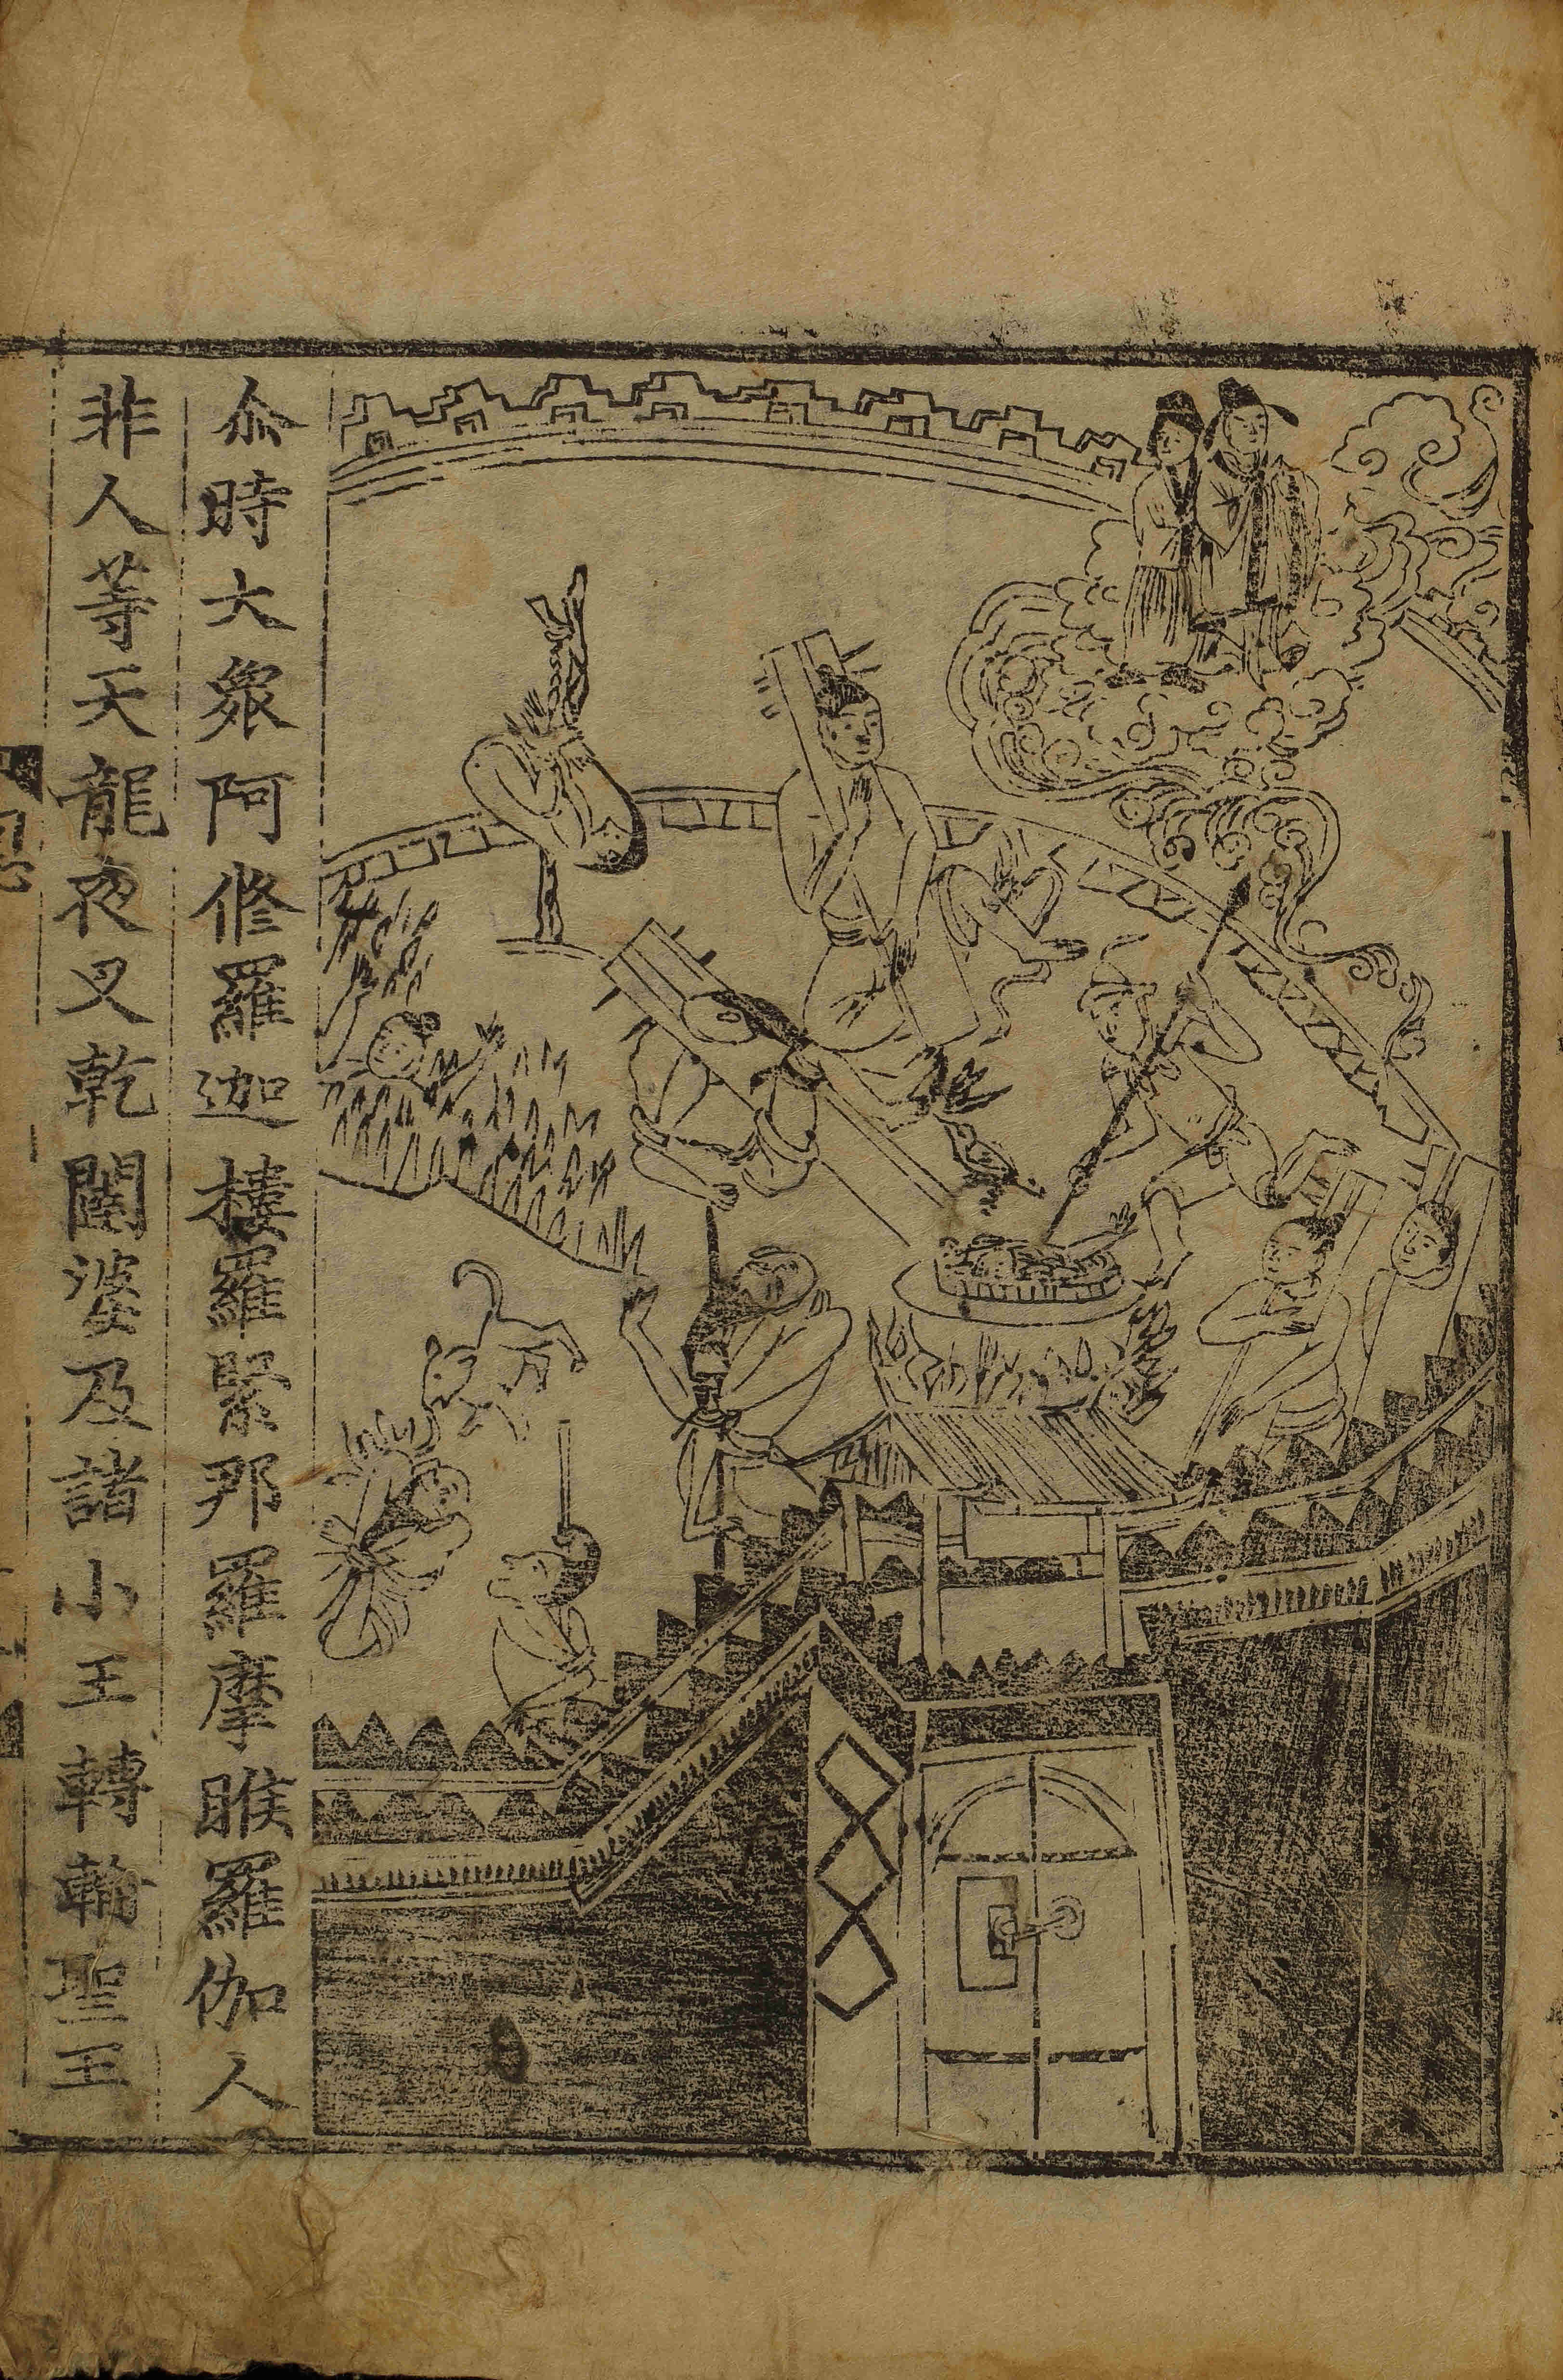 尒時大衆阿修羅迦樓羅緊那羅摩睺羅伽人
非人等天龍夜叉乾闥婆及諸小王轉輪聖王